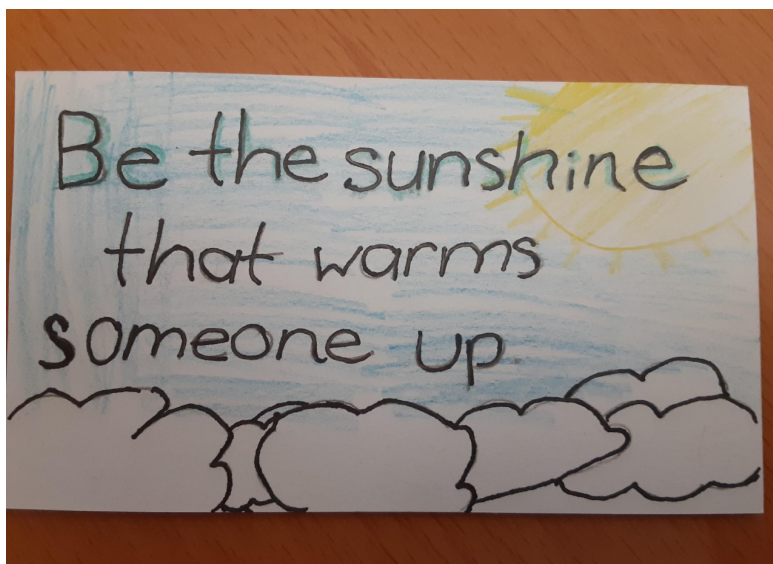 Be the sunshine
that warms
someone up.